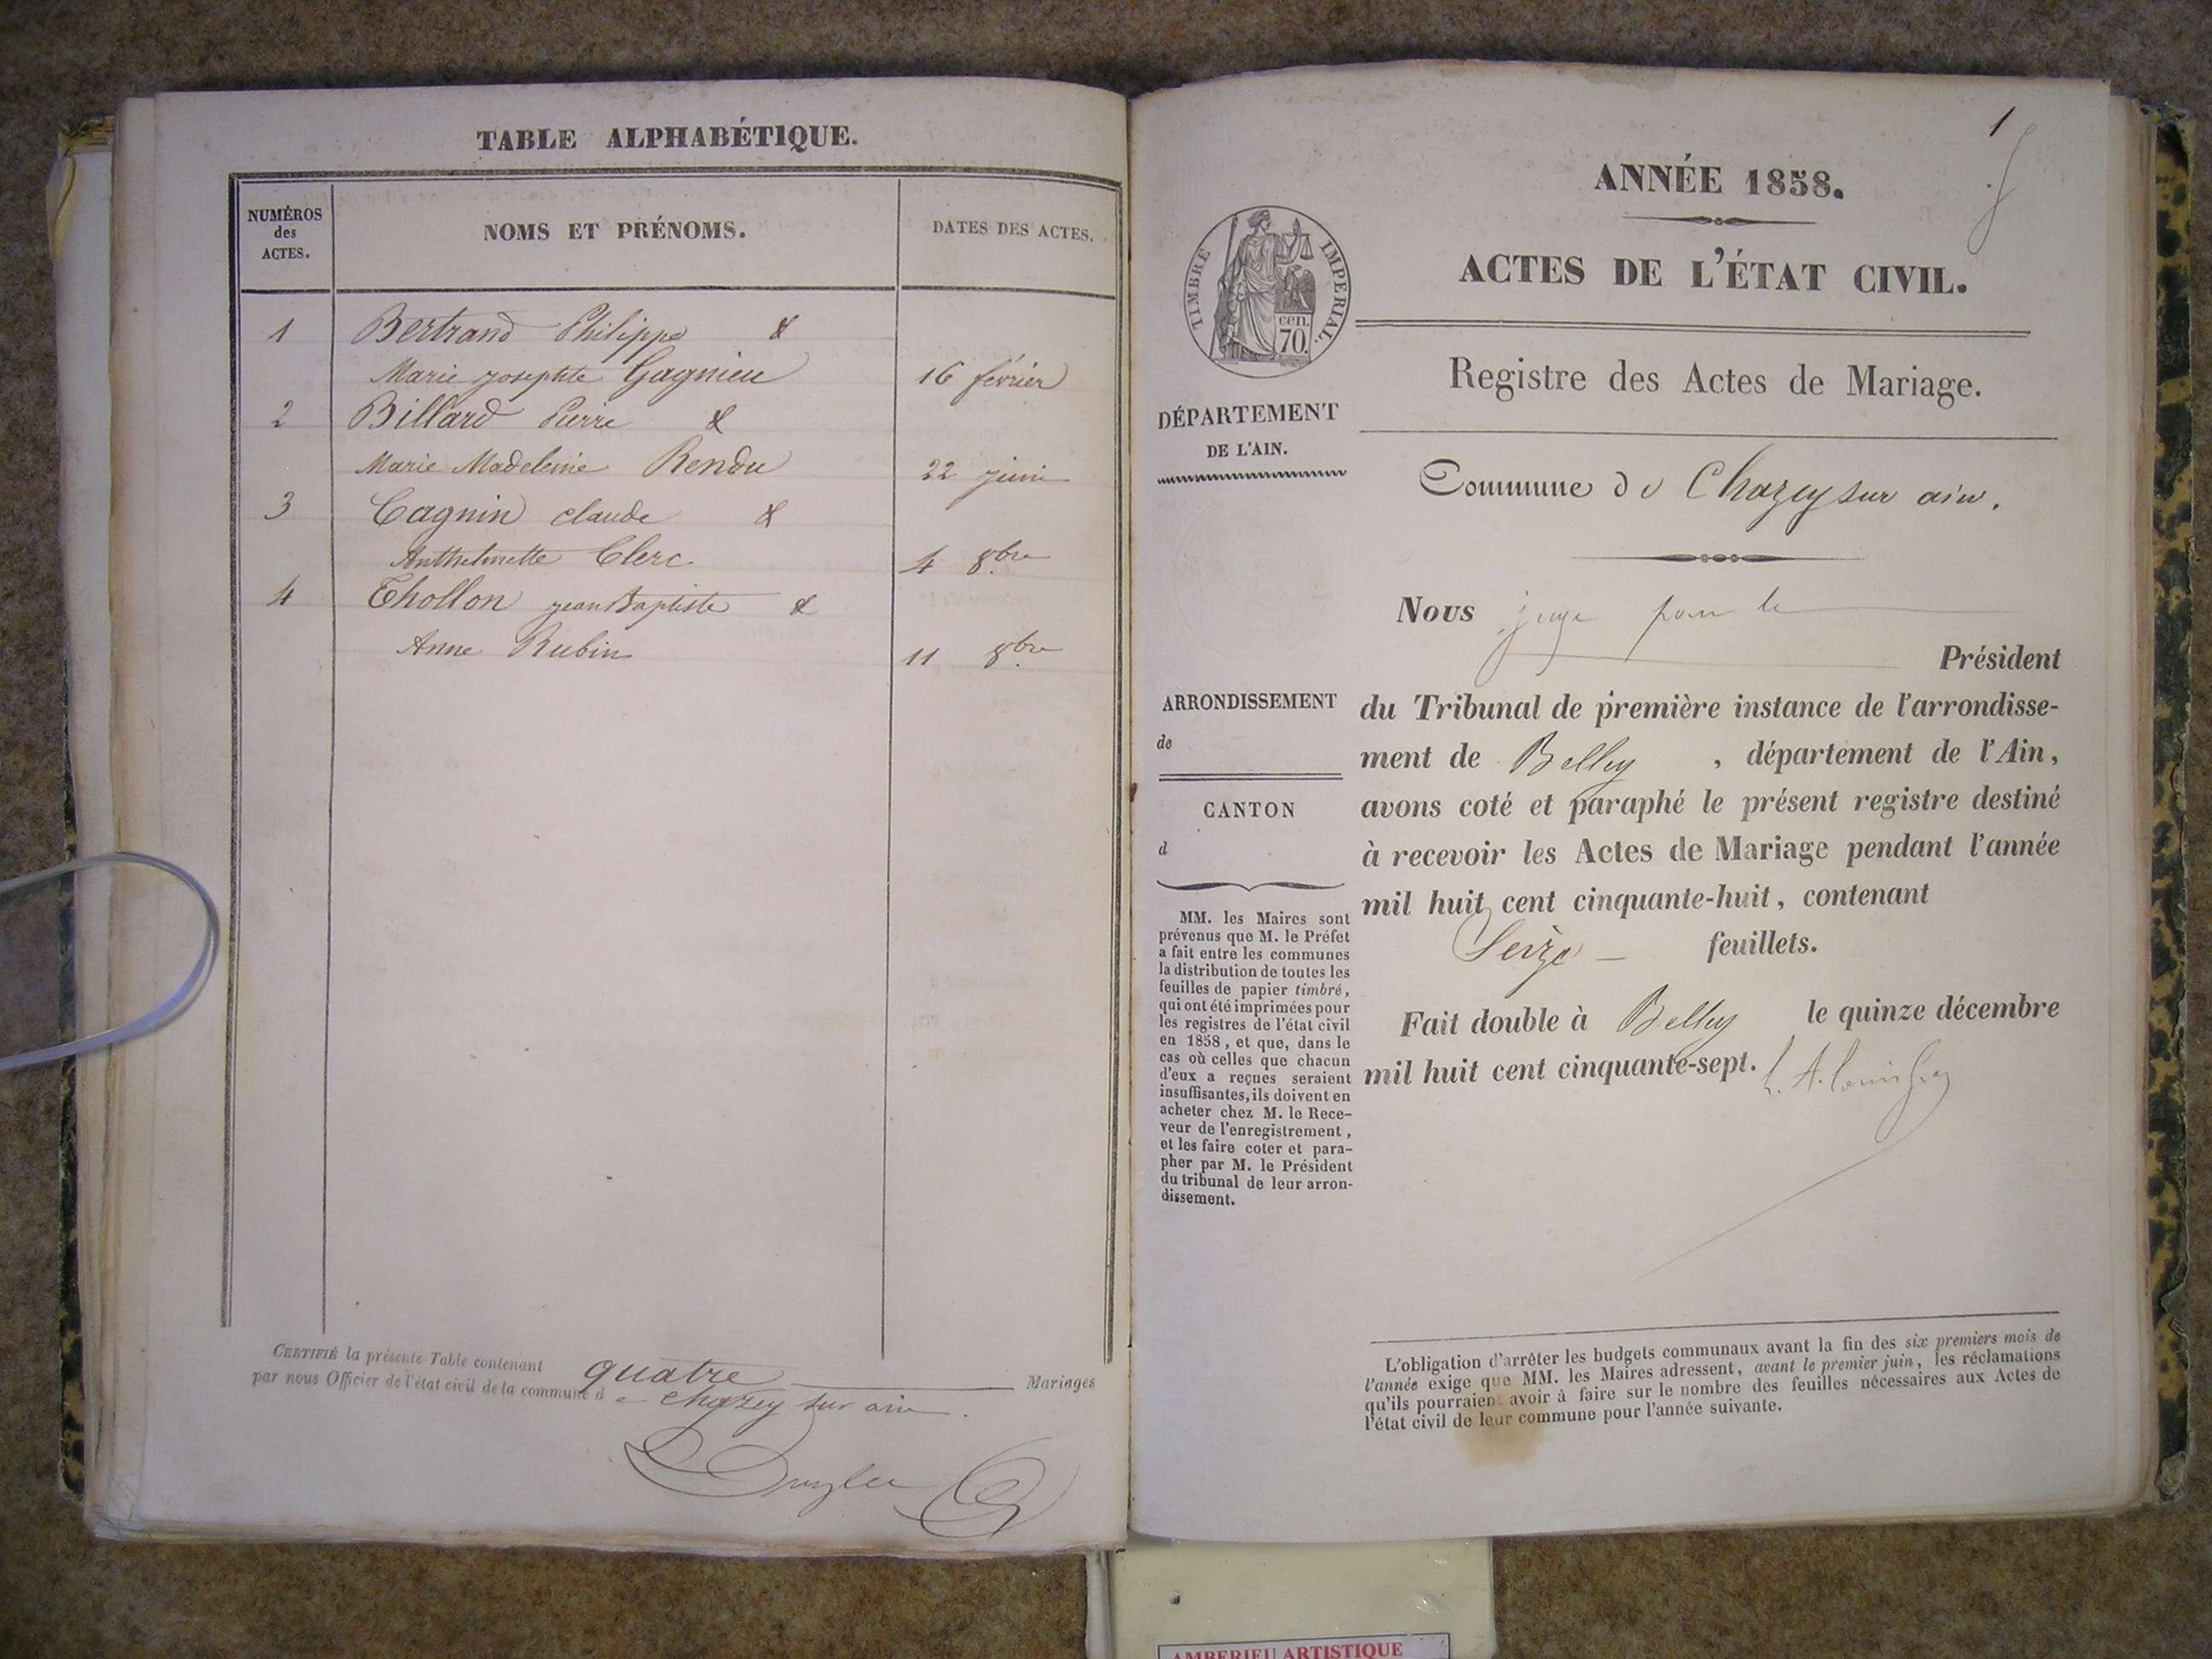 TABLE ALPHABÉTIQUE.
NUMÉROS
des
ACTES.
NOMS ET PRÉNOMS.
DATES DES ACTES.
1 Bertrand Philippe &
Marie josephte Gagnieu 16 février
2 Billard Pierre &
Marie Madeleine Rendu 22 juin
3 Cagnin claude &
Anthelmette Clerc 4 8bre
4 Thollon jean Baptiste &
Anne Rubin 11 8bre
CERTIFIÉ la présente Table contenant quatre Mariages
par nous Officier de l'état civil de la commune de chazey sur ain.
1
ANNÉE 1858.
ACTES DE L'ÉTAT CIVIL.
TIMBRE IMPERIAL.
cen.
70.
Registre des Actes de Mariage.
DÉPARTEMENT
DE L'AIN.
Commune de Chazey sur ain.
Nous juge pour le
Président
ARRONDISSEMENT
de
CANTON
d
du Tribunal de première instance de l'arrondisse-
ment de Belley, département de l'Ain,
avons coté et paraphé le présent registre destiné
à recevoir les Actes de Mariage pendant l'année
mil huit cent cinquante-huit, contenant
Seize feuillets.
Fait double à Belley le quinze décembre
mil huit cent cinquante-sept.
MM. les Maires sont
prévenus que M. le Préfet
a fait entre les communes
la distribution de toutes les
feuilles de papier timbré,
qui ont été imprimées pour
les registres de l'état civil
en 1858, et que, dans le
cas où celles que chacun
d'eux a reçues seraient
insuffisantes, ils doivent en
acheter chez M. le Rece-
veur de l'enregistrement,
et les faire coter et para-
pher par M. le Président
du tribunal de leur arron-
dissement.
L'obligation d'arrêter les budgets communaux avant la fin des six premiers mois de
l'année exige que MM. les Maires adressent, avant le premier juin, les réclamations
qu'ils pourraient avoir à faire sur le nombre des feuilles nécessaires aux Actes de
l'état civil de leur commune pour l'année suivante.
AMBERIEU ARTISTIQUE